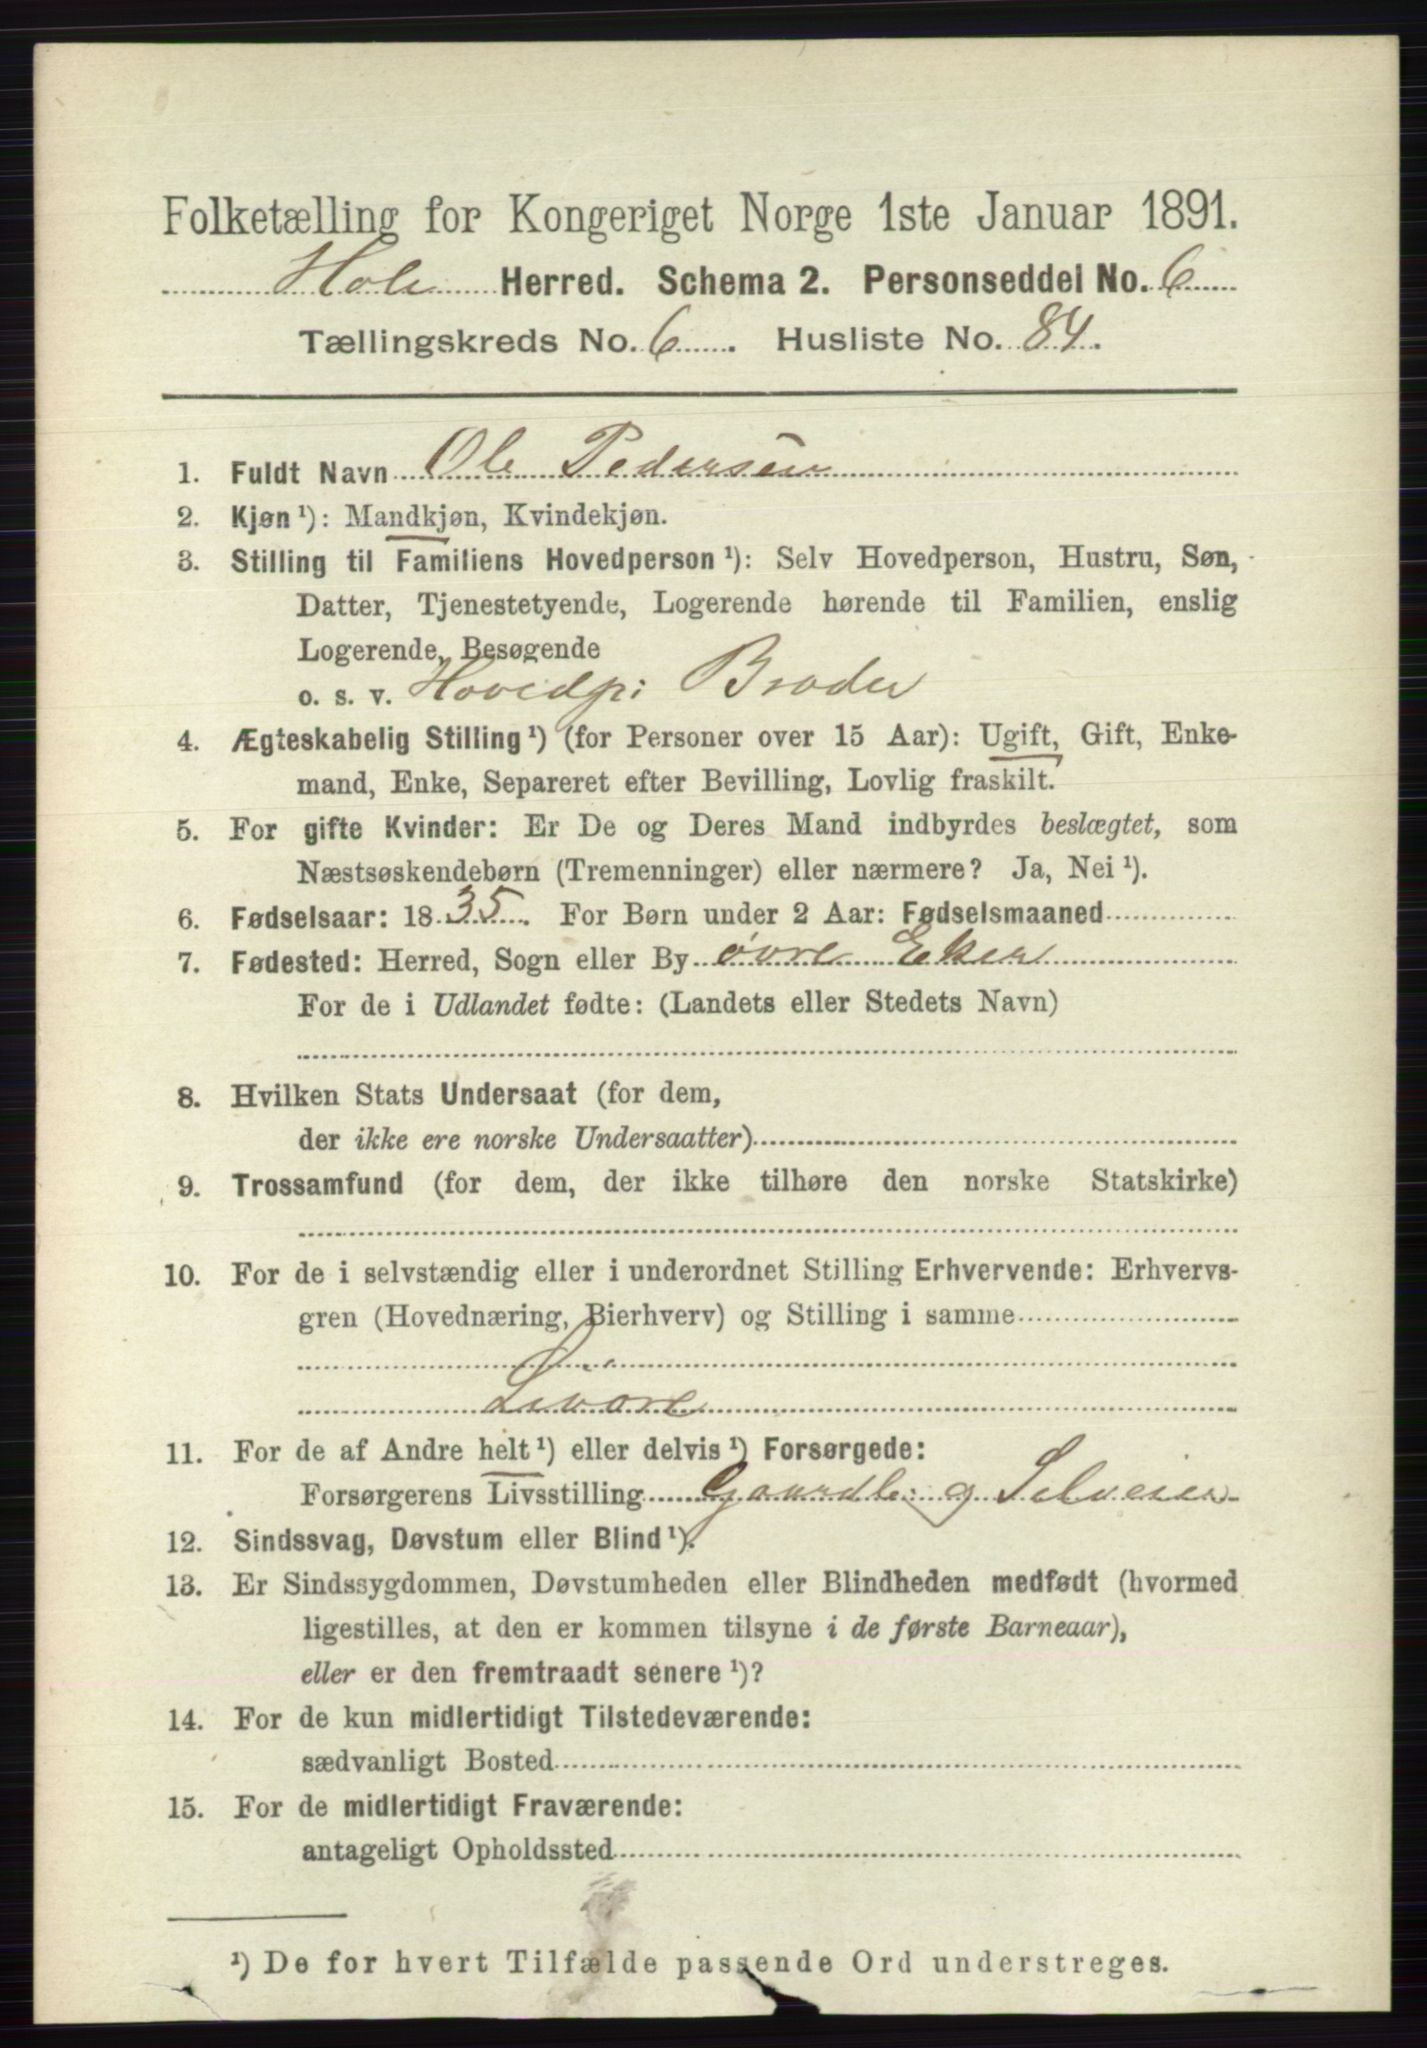 Folketælling for Kongeriget Norge 1ste Januar 1891.
Hole Herred. Schema 2. Personseddel No. 6
Tællingskreds No. 6. Husliste No. 84.
1. Fuldt Navn Ole Pedersen
2. Kjøn ¹): Mandkjøn, Kvindekjøn.
3. Stilling til Familiens Hovedperson ¹): Selv Hovedperson, Hustru, Søn,
Datter, Tjenestetyende, Logerende hørende til Familien, enslig
Logerende, Besøgende
o. s. v. Hovedp: Broder
4. Ægteskabelig Stilling ¹) (for Personer over 15 Aar): Ugift, Gift, Enke-
mand, Enke, Separeret efter Bevilling, Lovlig fraskilt.
5. For gifte Kvinder: Er De og Deres Mand indbyrdes beslægtet, som
Næstsøskendebørn (Tremenninger) eller nærmere? Ja, Nei ¹).
6. Fødselsaar: 1835. For Børn under 2 Aar: Fødselsmaaned
7. Fødested: Herred, Sogn eller By øvre Eker
For de i Udlandet fødte: (Landets eller Stedets Navn)
8. Hvilken Stats Undersaat (for dem,
der ikke ere norske Undersaatter)
9. Trossamfund (for dem, der ikke tilhøre den norske Statskirke)
10. For de i selvstændig eller i underordnet Stilling Erhvervende: Erhvervs-
gren (Hovednæring, Bierhverv) og Stilling i samme
11. For de af Andre helt ¹) eller delvis ¹) Forsørgede:
Forsørgerens Livsstilling Gaardb: og Selveier
12. Sindssvag, Døvstum eller Blind ¹).
13. Er Sindssygdommen, Døvstumheden eller Blindheden medfødt (hvormed
ligestilles, at den er kommen tilsyne i de første Barneaar),
eller er den fremtraadt senere ¹)?
14. For de kun midlertidigt Tilstedeværende:
sædvanligt Bosted
15. For de midlertidigt Fraværende:
antageligt Opholdssted
¹) De for hvert Tilfælde passende Ord understreges.